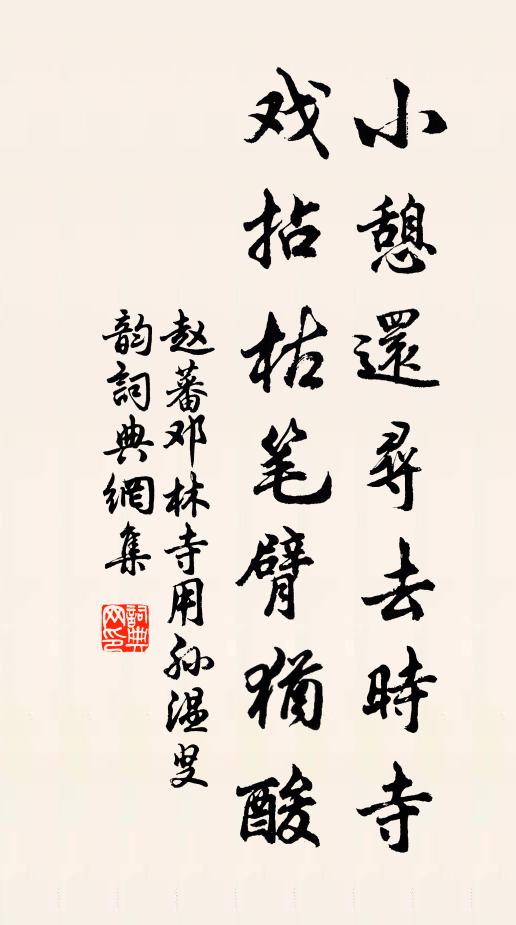 小憩還尋去時寺
戏拈枯笔臂犹酸
赵蕃邓林寺用孙温叟
韵詞典網集
詞典網印